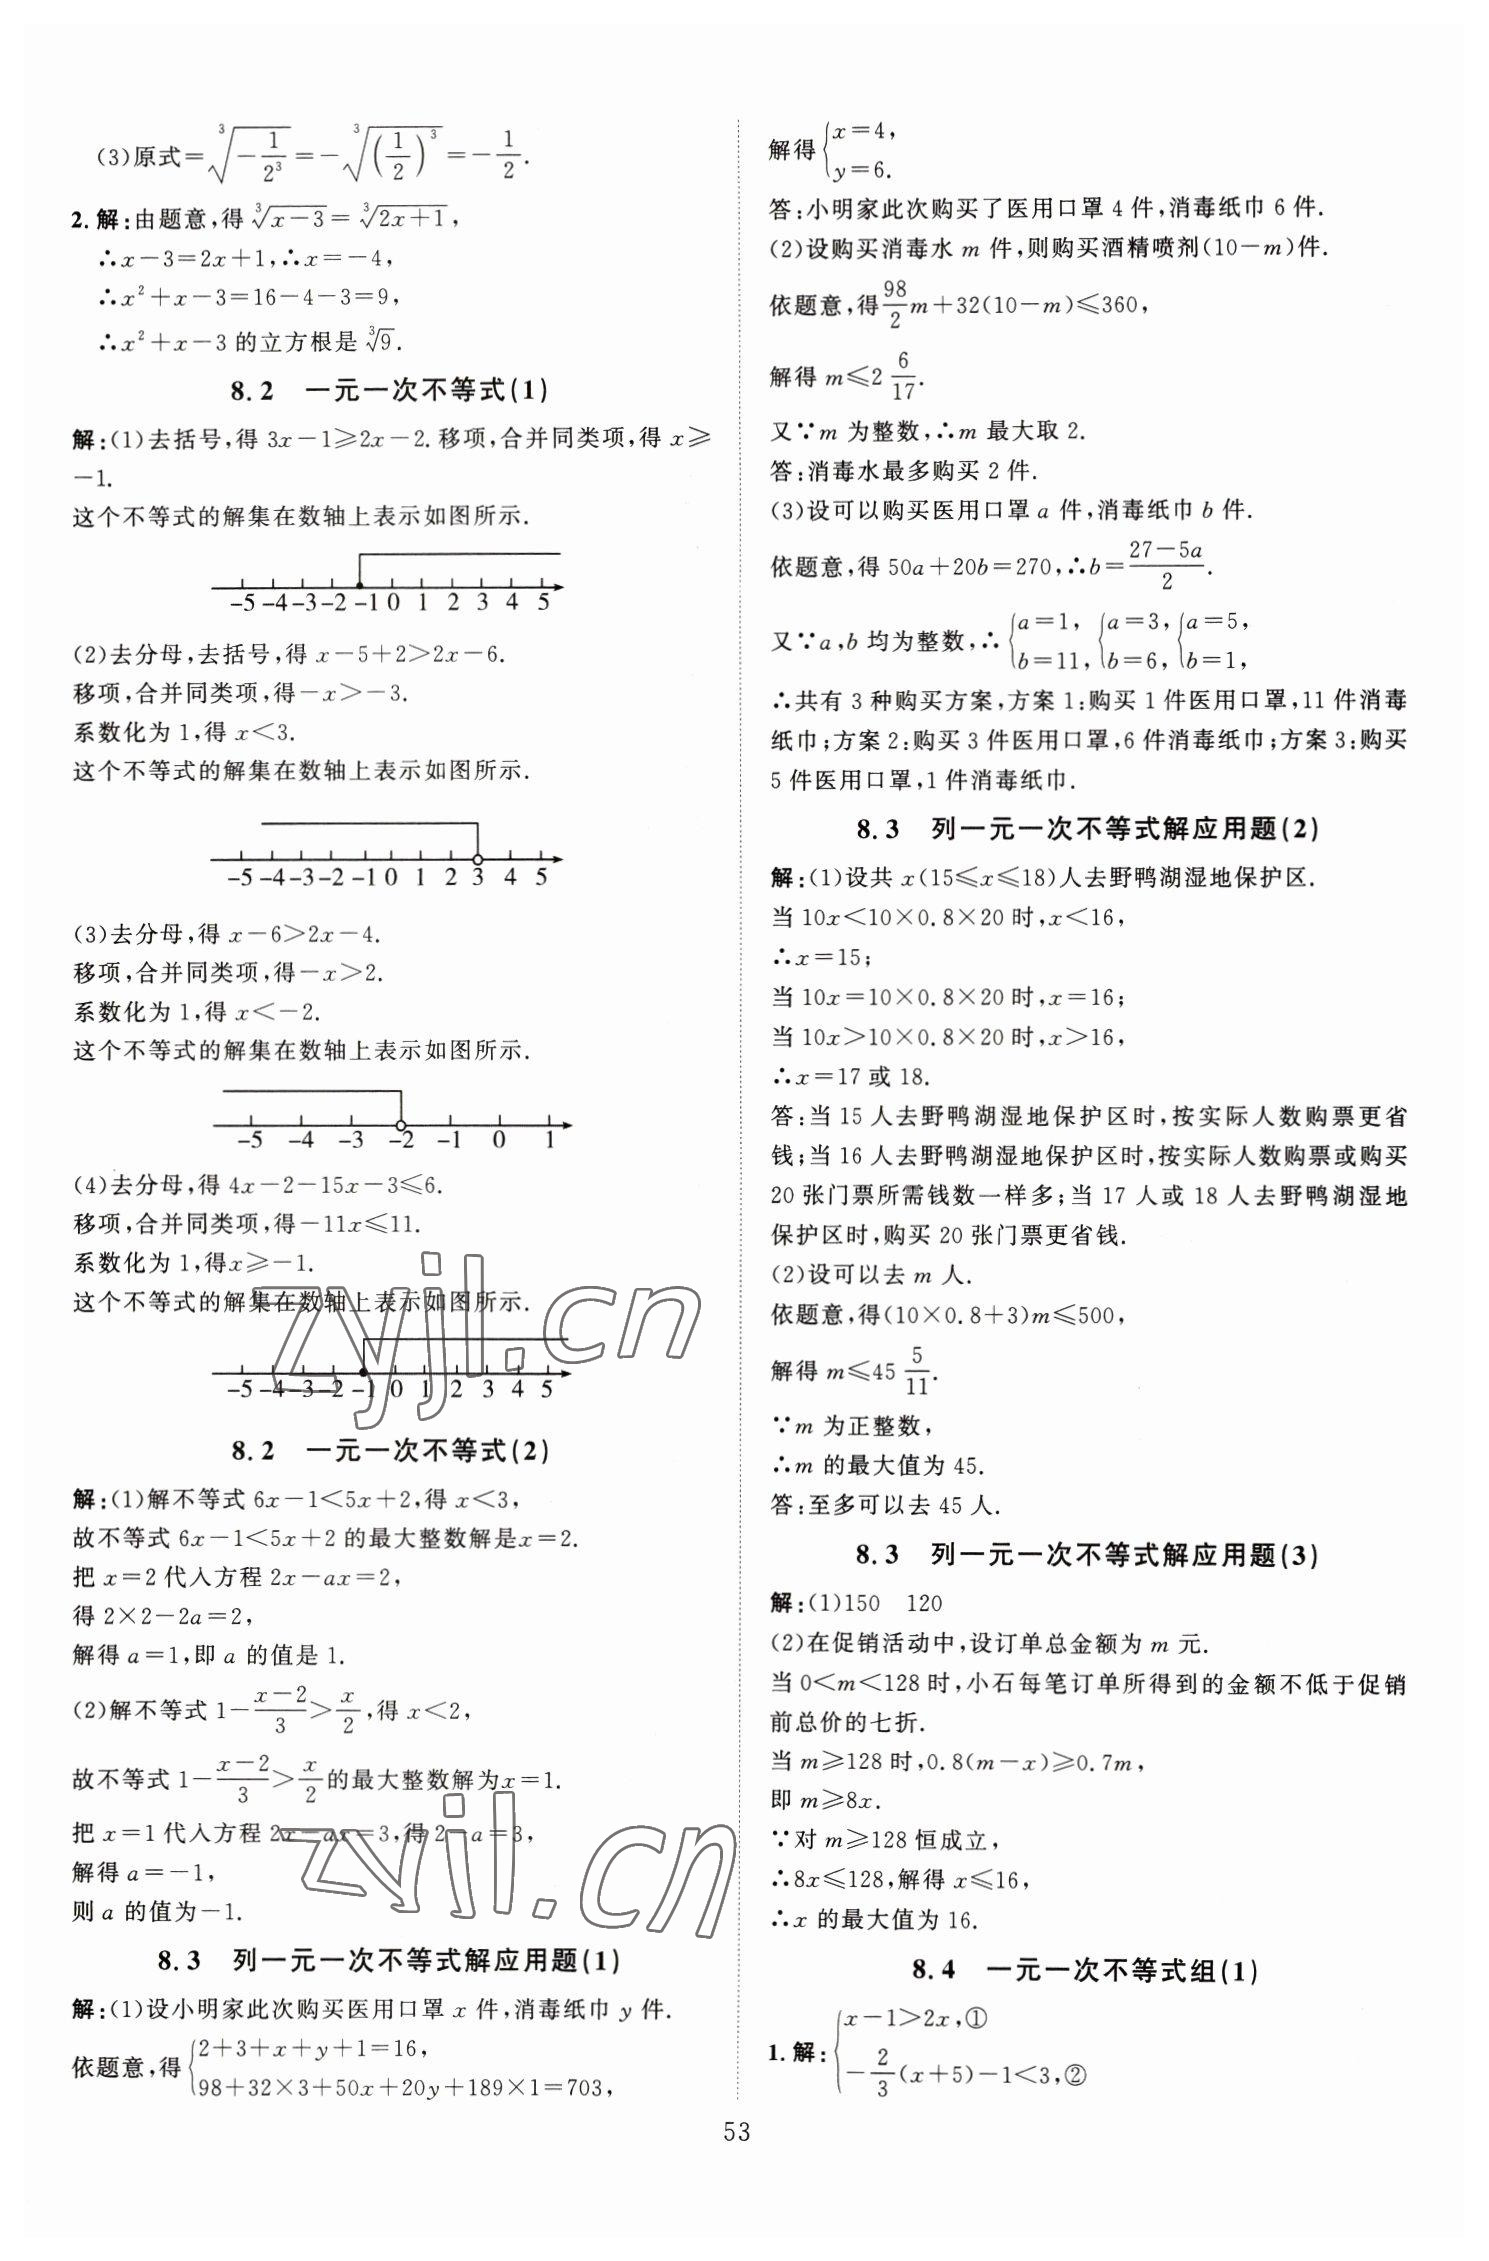 (3)原式=∛(-1/2³)=-∛((1/2)³)=-1/2.
2.解:由题意,得∛(x-3)=∛(2x+1),
∴x-3=2x+1,∴x=-4,
∴x²+x-3=16-4-3=9,
∴x²+x-3 的立方根是∛9.
8.2 一元一次不等式(1)
解:(1)去括号,得 3x-1⩾2x-2.移项,合并同类项,得 x⩾
-1.
这个不等式的解集在数轴上表示如图所示.
-5 -4 -3 -2 -1 0 1 2 3 4 5
(2)去分母,去括号,得 x-5+2>2x-6.
移项,合并同类项,得-x>-3.
系数化为 1,得 x<3.
这个不等式的解集在数轴上表示如图所示.
-5 -4 -3 -2 -1 0 1 2 3 4 5
(3)去分母,得 x-6>2x-4.
移项,合并同类项,得-x>2.
系数化为 1,得 x<-2.
这个不等式的解集在数轴上表示如图所示.
-5 -4 -3 -2 -1 0 1
(4)去分母,得 4x-2-15x-3⩽6.
移项,合并同类项,得-11x⩽11.
系数化为 1,得x⩾-1.
这个不等式的解集在数轴上表示如图所示.
-5 -4 -3 -2 -1 0 1 2 3 4 5
zyjl.cn
8.2 一元一次不等式(2)
解:(1)解不等式 6x-1<5x+2,得 x<3,
故不等式 6x-1<5x+2 的最大整数解是x=2.
把 x=2 代入方程 2x-ax=2,
得 2×2-2a=2,
解得 a=1,即 a 的值是 1.
(2)解不等式 1-(x-2)/3>x/2,得 x<2,
故不等式 1-(x-2)/3>x/2的最大整数解为x=1.
把 x=1 代入方程 2x-ax=3,得 2-a=3,
解得 a=-1,
则 a 的值为-1.
zyjl.cn
8.3 列一元一次不等式解应用题(1)
解:(1)设小明家此次购买医用口罩 x 件,消毒纸巾 y 件.
依题意,得{2+3+x+y+1=16,
98+32×3+50x+20y+189×1=703,
解得{x=4,
y=6.
答:小明家此次购买了医用口罩 4 件,消毒纸巾 6 件.
(2)设购买消毒水 m 件,则购买酒精喷剂(10-m)件.
依题意,得98/2m+32(10-m)⩽360,
解得 m⩽2 6/17.
又∵m 为整数,∴m 最大取 2.
答:消毒水最多购买 2 件.
(3)设可以购买医用口罩 a 件,消毒纸巾 b 件.
依题意,得 50a+20b=270,∴b=(27-5a)/2.
又∵a,b 均为整数,∴{a=1, {a=3, {a=5,
b=11, b=6, b=1,
∴共有 3 种购买方案,方案 1:购买 1 件医用口罩,11 件消毒
纸巾;方案 2:购买 3 件医用口罩,6 件消毒纸巾;方案 3:购买
5 件医用口罩,1 件消毒纸巾.
8.3 列一元一次不等式解应用题(2)
解:(1)设共 x(15⩽x⩽18)人去野鸭湖湿地保护区.
当 10x<10×0.8×20 时,x<16,
∴x=15;
当 10x=10×0.8×20 时,x=16;
当 10x>10×0.8×20 时,x>16,
∴x=17 或 18.
答:当 15 人去野鸭湖湿地保护区时,按实际人数购票更省
钱;当 16 人去野鸭湖湿地保护区时,按实际人数购票或购买
20 张门票所需钱数一样多;当 17 人或 18 人去野鸭湖湿地
保护区时,购买 20 张门票更省钱.
(2)设可以去 m 人.
依题意,得(10×0.8+3)m⩽500,
解得 m⩽45 5/11.
∵m 为正整数,
∴m 的最大值为 45.
答:至多可以去 45 人.
8.3 列一元一次不等式解应用题(3)
解:(1)150 120
(2)在促销活动中,设订单总金额为 m 元.
当 0<m<128 时,小石每笔订单所得到的金额不低于促销
前总价的七折.
当 m⩾128 时,0.8(m-x)⩾0.7m,
即 m⩾8x.
∵对 m⩾128 恒成立,
∴8x⩽128,解得 x⩽16,
∴x 的最大值为 16.
8.4 一元一次不等式组(1)
1.解:{x-1>2x,①
-2/3(x+5)-1<3,②
53